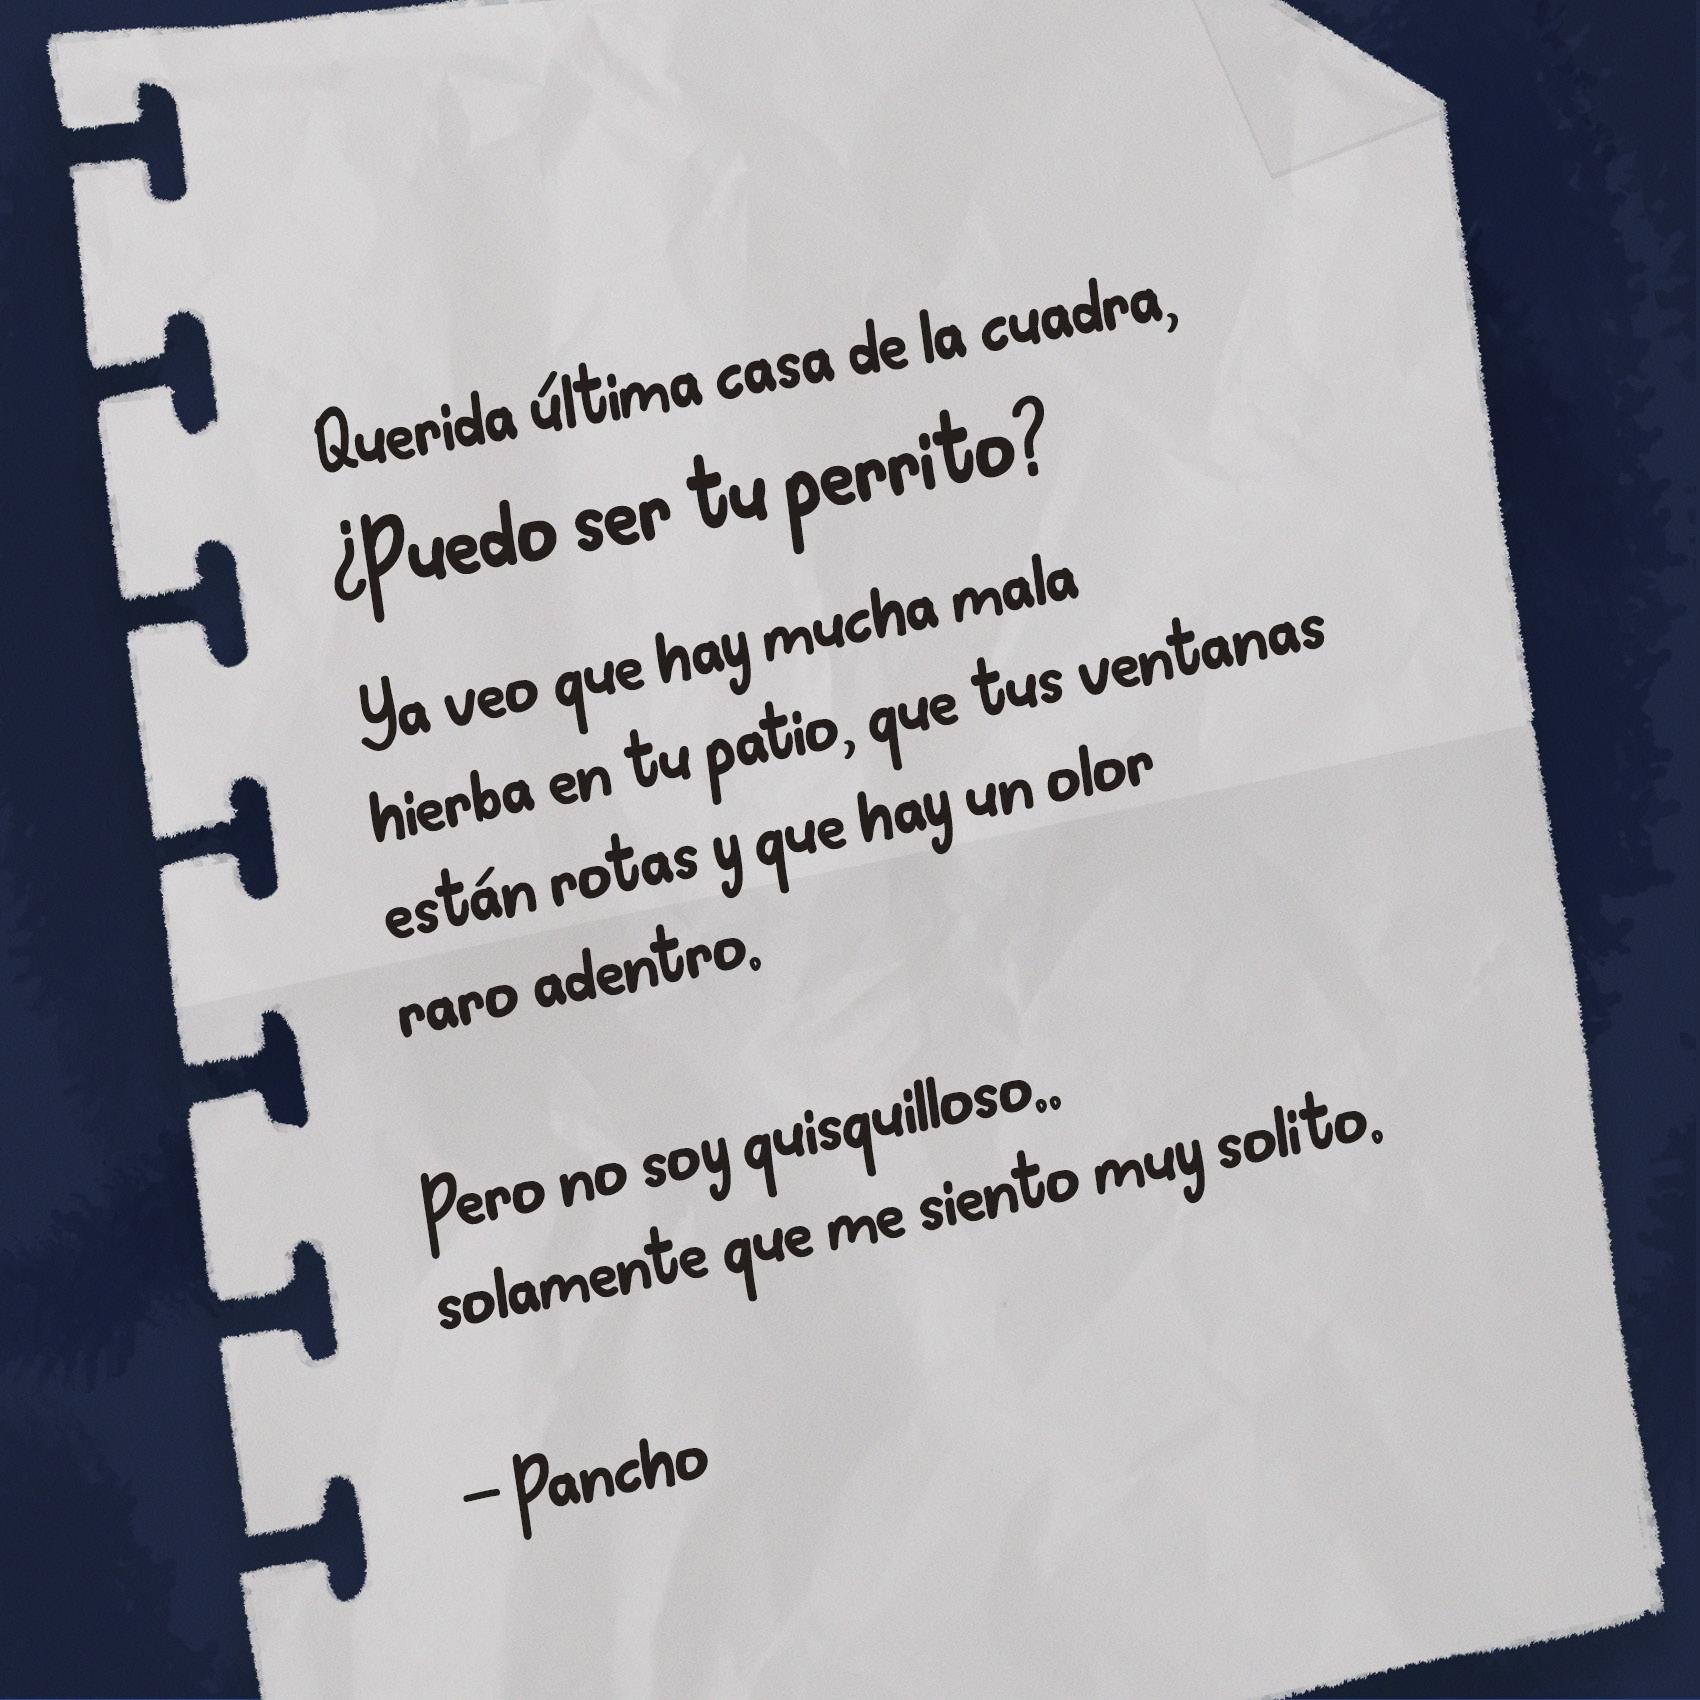 Querida última casa de la cuadra,
¿Puedo ser tu perrito?
Ya veo que hay mucha mala
hierba en tu patio, que tus ventanas
están rotas y que hay un olor
raro adentro.
Pero no soy quisquilloso..
solamente que me siento muy solito.
- Pancho